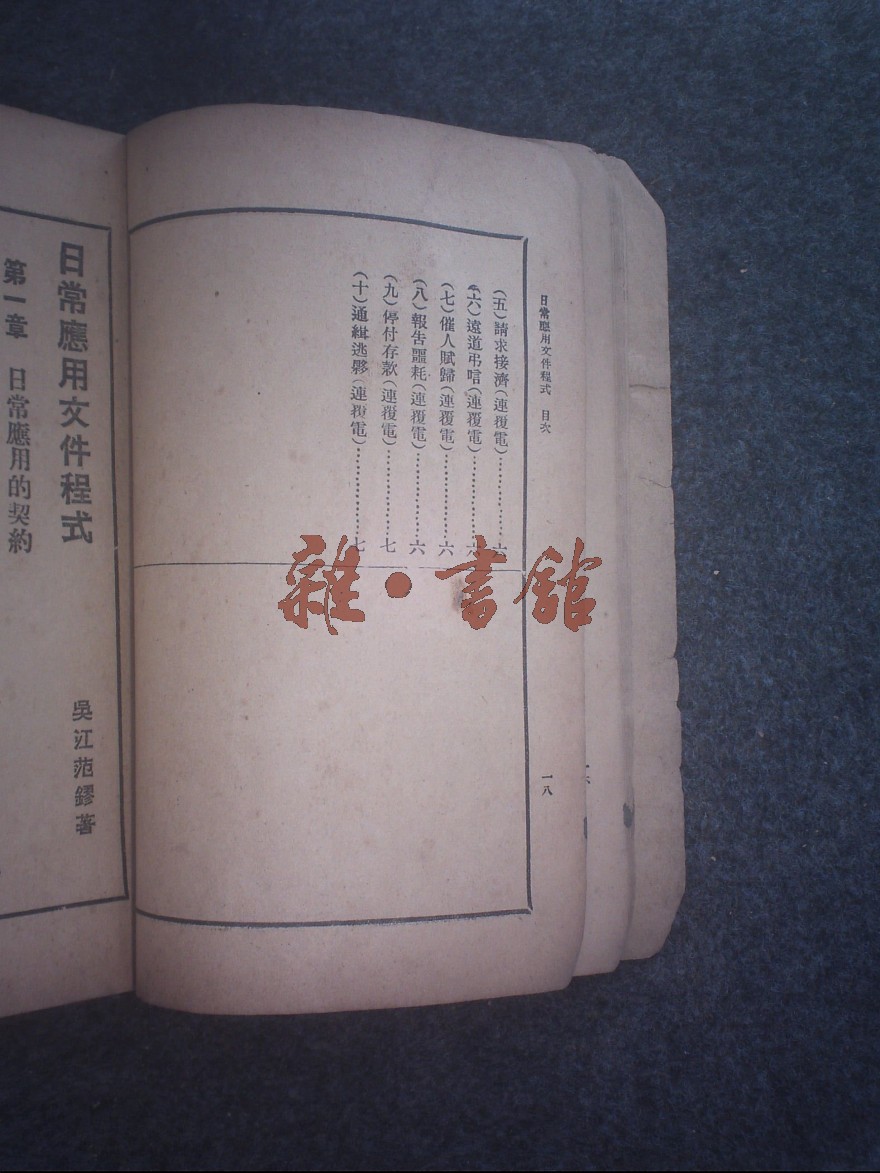 日常應用文件程式 目次
(五)請求接濟(連覆電)……………六
(六)遠道弔唁(連覆電)……………六
(七)催人賦歸(連覆電)……………六
(八)報告噩耗(連覆電)……………六
(九)停付存款(連覆電)……………七
(十)通緝逃夥(連覆電)……………七
一八
日常應用文件程式
吳江范鏐著
第一章 日常應用的契約
雜·書館